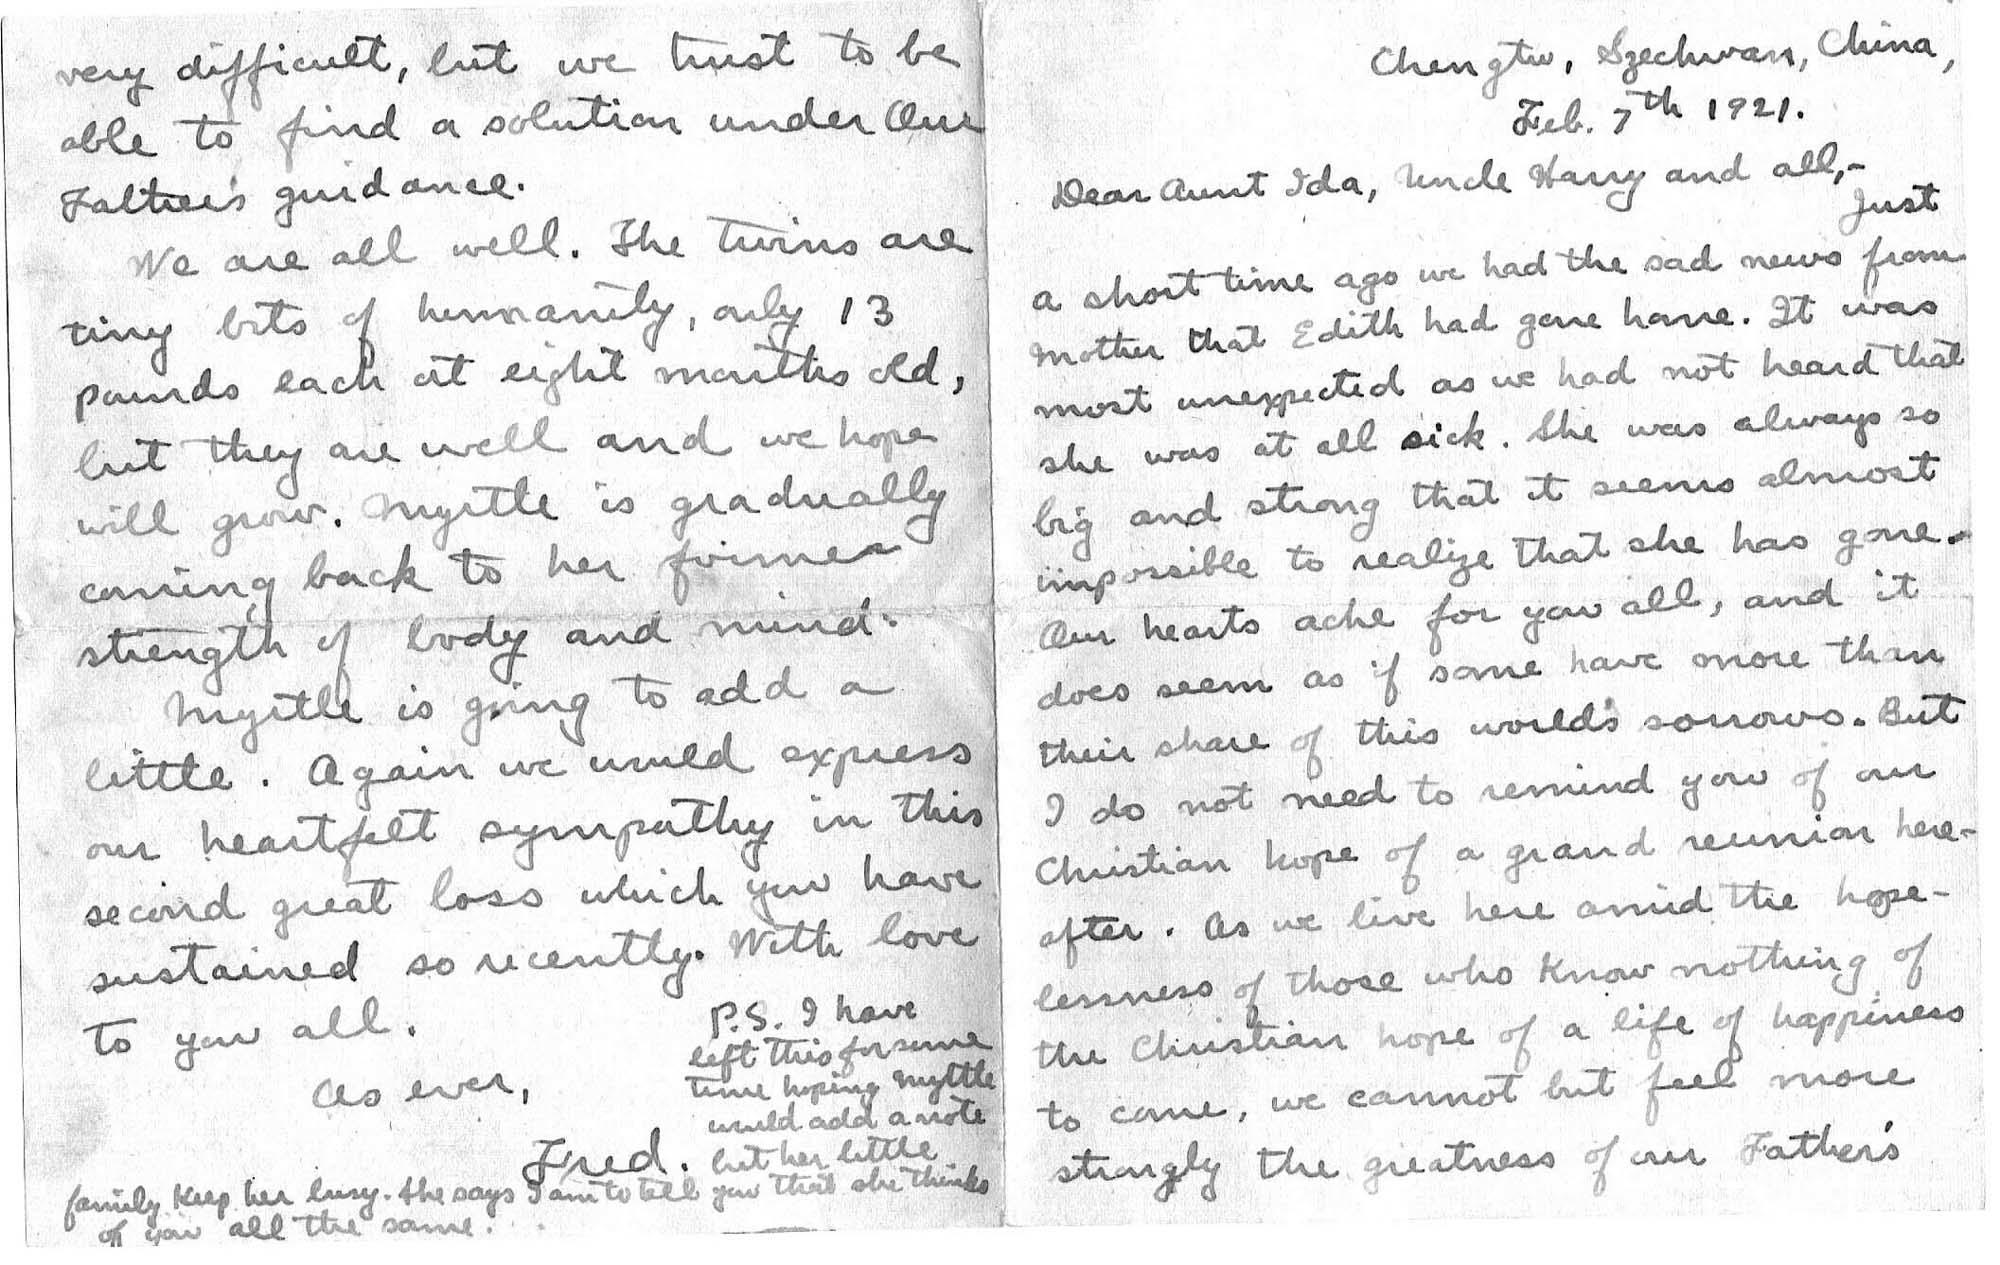 Chengtu, Szechwan, China,
Feb. 7th 1921.
Dear Aunt Ida, Uncle Harry and all,-
Just
a short time ago we had the sad news from
Mother that Edith had gone home. It was
most unexpected as we had not heard that
she was at all sick. She was always so
big and strong that it seems almost
impossible to realize that she has gone.
Our hearts ache for you all, and it
does seem as if some have more than
their share of this world's sorrows. But
I do not need to remind you of our
Christian hope of a grand reunion here-
after. As we live here amid the hope-
lessness of those who know nothing of
the Christian hope of a life of happiness
to come, we cannot but feel more
strongly the greatness of our Father's
very difficult, but we trust to be
able to find a solution under Our
Father's guidance.
We are all well. The twins are
tiny bits of humanity, only 13
pounds each at eight months old,
but they are well and we hope
will grow. Myrtle is gradually
coming back to her former
strength of body and mind.
Myrtle is going to add a
little. Again we would express
our heartfelt sympathy in this
second great loss which you have
sustained so recently. With love
to you all.
As ever,
Fred.
P.S. I have
left this for some
time hoping Myrtle
would add a note
but her little
family keep her busy. She says I am to tell you that she thinks
of you all the same.